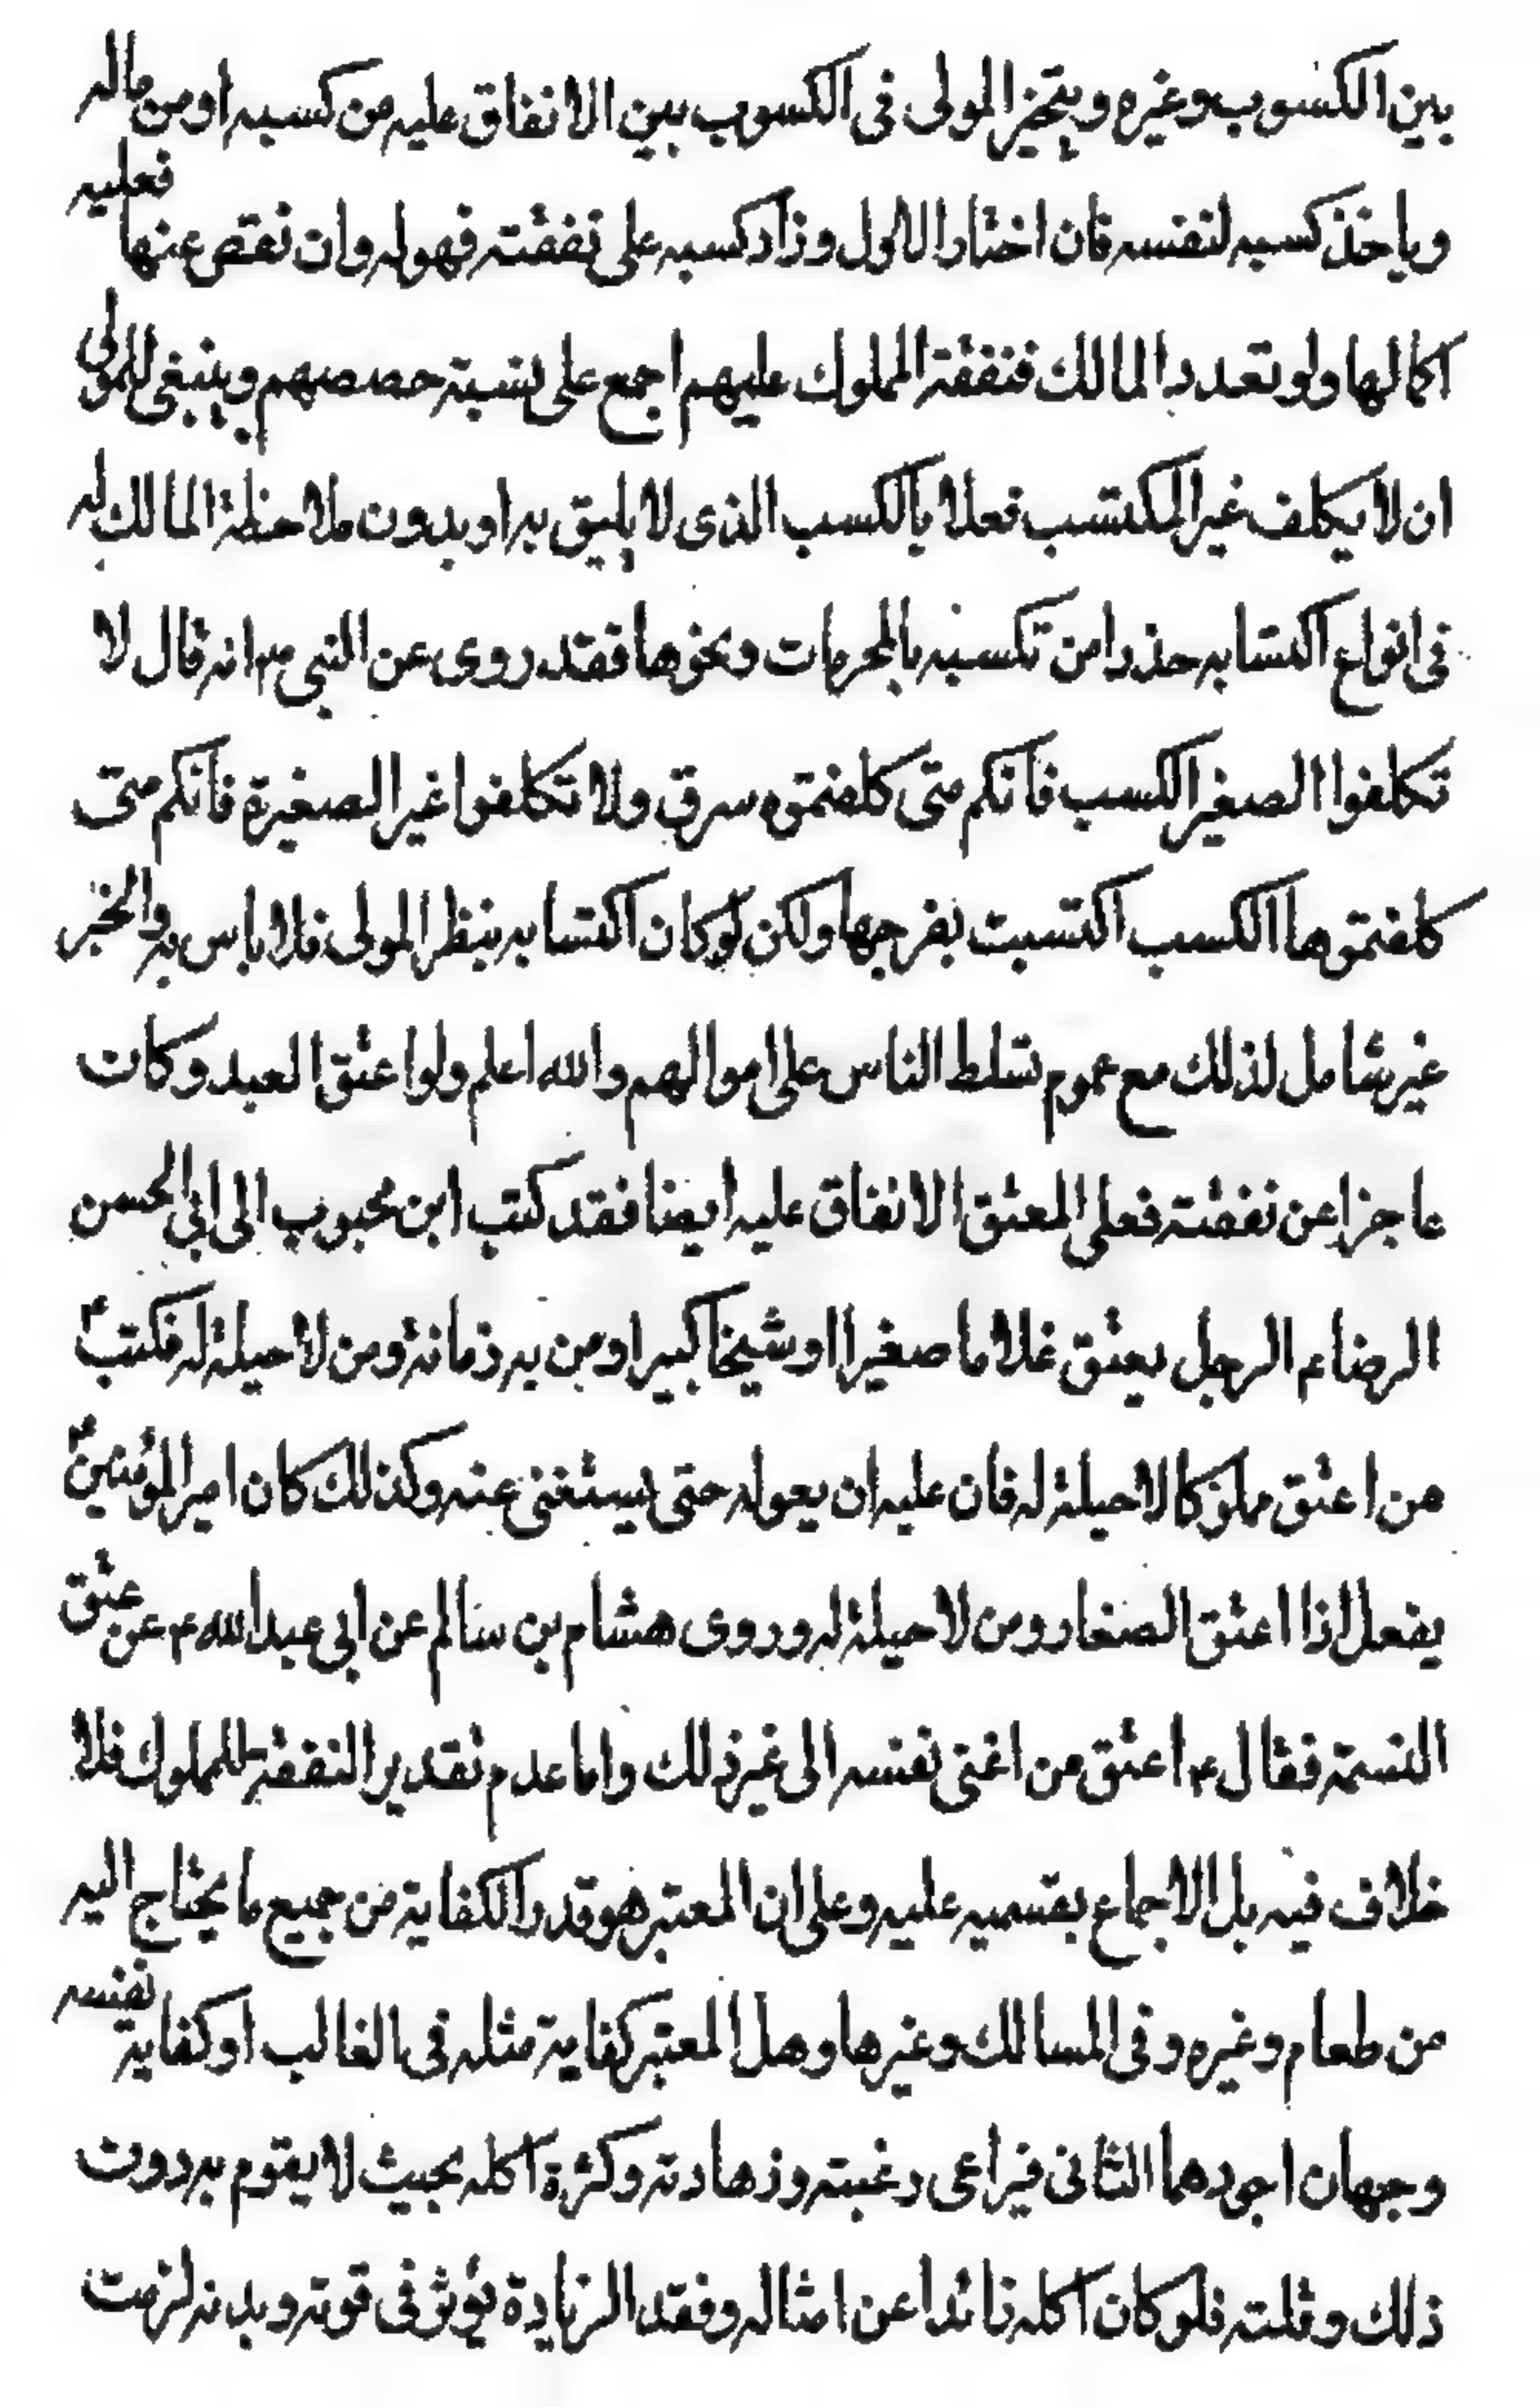 بين الكسوب وغيره ويتخير المولى فى الكسوب بين الانفاق عليه من كسبه او من ماله
وياخذ كسبه لنفسه فان اختار الاول وزاد كسبه على نفقته فهو له وان نقص عنها فعليه
اكمالها ولو تعدد المالك فنفقة المملوك عليهم اجمع على نسبة حصصهم وينبغى للمولى
ان لا يكلف غير المكتسب فعلا بالكسب الذى لا يليق به او بدون ملاحظة المالك له
فى انواع اكتسابه حذرا من تكسبه بالمحرمات ونحوها فقد روى عن النبى ص انه قال لا
تكلفوا الصغير الكسب فانكم متى كلفتموه سرق ولا تكلفوا غير الصغيرة فانكم متى
كلفتموها الكسب اكتسبت بفرجها ولكن لو كان اكتسابه بنظر المولى فلا باس به والخبر
غير شامل لذلك مع عموم تسلط الناس على اموالهم والله اعلم ولو اعتق العبد وكان
عاجزا عن نفقته فعلى المعتق الانفاق عليه ايضا فقد كتب ابن محبوب الى ابى الحسن
الرضا ع الرجل يعتق غلاما صغيرا او شيخا كبيرا او من به زمانة ومن لا حيلة له فكتب ع
من اعتق مملوكا لا حيلة له فان عليه ان يعوله حتى يستغنى عنه وكذلك كان امير المؤمنين ع
يفعل اذا اعتق الصغار ومن لا حيلة له وروى هشام بن سالم عن ابى عبد الله ع عن عتق
النسمة فقال ع اعتق من اغنى نفسه الى غير ذلك واما عدم تقدير النفقة للمملوك فلا
خلاف فيه بل الاجماع بقسميه عليه وعلى ان المعتبر هو قدر الكفاية من جميع ما يحتاج اليه
من طعام وغيره وفى المسالك وغيرها وهل المعتبر كفاية مثله فى الغالب او كفاية نفسه
وجهان اجودهما الثانى فيراعى رغبته وزهادته وكثرة اكله بحيث لا يقوم به دون
ذلك وقلته فلو كان اكله زائدا عن امثاله وفقد الزيادة يؤثر فى قوته وبدنه لزمت